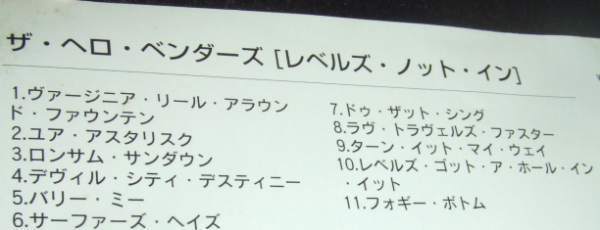 ザ・ヘロ・ベンダーズ [レベルズ・ノット・イン]
1.ヴァージニア・リール・アラウン
ド・ファウンテン
2.ユア・アスタリスク
3.ロンサム・サンダウン
4.デヴィル・シティ・デスティニー
5.バリー・ミー
6.サーファーズ・ヘイズ
7.ドゥ・ザット・シング
8.ラヴ・トラヴェルズ・ファスター
9.ターン・イット・マイ・ウェイ
10.レベルズ・ゴット・ア・ホール・イン
・イット
11.フォギー・ボトム